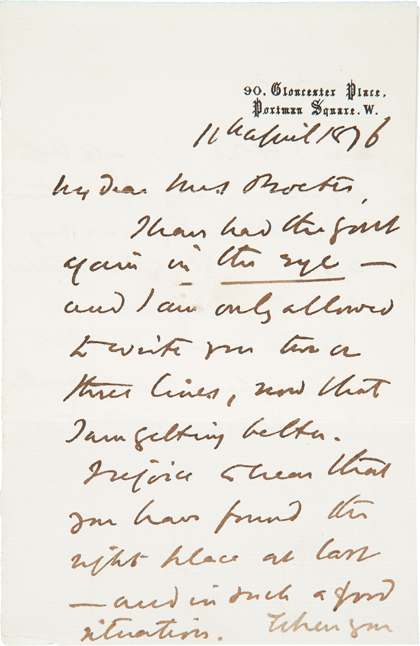 90. Gloucester Place,
Portman Square. W.
11th April 1876
My dear Mrs Procter,
I have had the gout
again in the eye —
and I am only allowed
to write you two or
three lines, now that
I am getting better.
I rejoice to hear that
you have found the
right place at last
— and in such a good
situation. When you